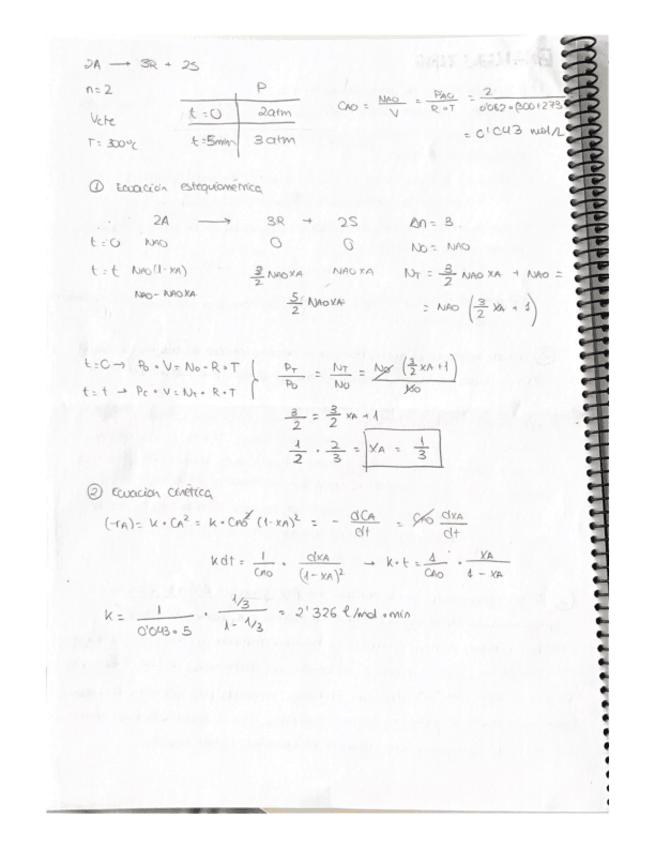 2A → 3R + 2S
n = 2
Vcte
T = 300ºC
P
t = 0 2atm
t = 5min 3 atm
CAO = NAO / V = PAO / R • T = 2 / 0'082 • (300+273) = 0'043 mol/L
① Ecuación estequiométrica
2A → 3R + 2S Δn = 3
t = 0 NAO 0 0 No = NAO
t = t NAO(1-XA) 3/2 NAOXA NAOXA NT = 3/2 NAO XA + NAO =
NAO - NAOXA 5/2 NAOXA = NAO (3/2 XA + 1)
t = 0 → Po • V = No • R • T
t = t → Pt • V = NT • R • T
PT / Po = NT / NO = No (3/2 XA + 1) / No
3/2 = 3/2 XA + 1
1/2 • 2/3 = XA = 1/3
② Ecuacion cinética
(-rA) = k • CA² = k • CAO² (1-XA)² = - dCA / dt = CAO dXA / dt
k dt = 1 / CAO • dXA / (1-XA)² → k • t = 1 / CAO • XA / 1 - XA
k = 1 / 0'043 • 5 • 1/3 / 1 - 1/3 = 2'326 l/mol • min